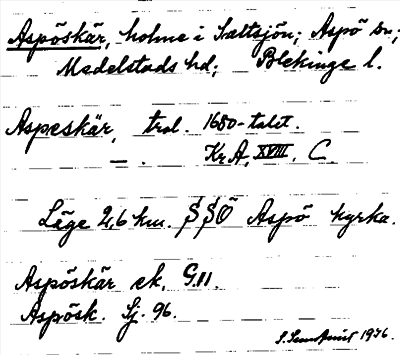 Aspöskär, holme i Saltsjön; Aspö sn;
Medelstads hd; Blekinge l.
Aspeskär, trol. 1680-talet.
— . Kr A, XVIII, C.
Läge 2,6 km. SSÖ Aspö kyrka.
Aspöskär ek. G. 11.
Aspösk. Sj. 96.
1936.